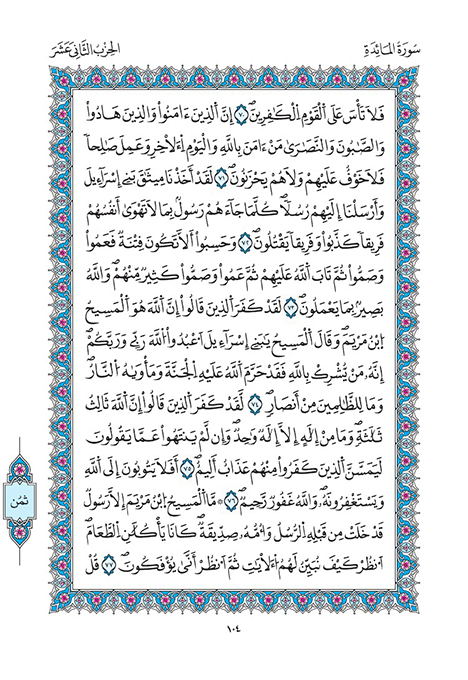 سُورَةُ الْمَائِدَةِ
الحِزْبُ الثَّانِي عَشَرَ
فَلَا تَأْسَ عَلَى اَ۬لْقَوْمِ اِ۬لْكٰ۪فِرِينَۖ ٧٠ إِنَّ اَ۬لذِينَ ءَامَنُواْ وَالذِينَ هَادُواْ
وَالصَّٰبُونَ وَالنَّصَٰر۪يٰ مَنَ اٰمَنَ بِاللَّهِ وَالْيَوْمِ اِ۬لَاخِرِ وَعَمِلَ صَٰلِحاٗ
فَلَا خَوْفٌ عَلَيْهِمْ وَلَا هُمْ يَحْزَنُونَۖ ٧١ لَقَدَ اَخَذْنَا مِيثَٰقَ بَنِےٓ إِسْرَآءِيلَ
وَأَرْسَلْنَآ إِلَيْهِمْ رُسُلاٗۖ كُلَّمَا جَآءَهُمْ رَسُولُۢ بِمَا لَا تَهْوَيٰٓ أَنفُسُهُمْ
فَرِيقاٗ كَذَّبُواْ وَفَرِيقاٗ يَقْتُلُونَۖ ٧٢ وَحَسِبُوٓاْ أَلَّا تَكُونَ فِتْنَةٞ فَعَمُواْ
وَصَمُّواْ ثُمَّ تَابَ اَ۬للَّهُ عَلَيْهِمْ ثُمَّ عَمُواْ وَصَمُّواْ كَثِيرٞ مِّنْهُمْۖ وَاللَّهُ
بَصِيرُۢ بِمَا يَعْمَلُونَۖ ٧٣ لَقَدْ كَفَرَ اَ۬لذِينَ قَالُوٓاْ إِنَّ اَ۬للَّهَ هُوَ اَ۬لْمَسِيحُ
اُ۪بْنُ مَرْيَمَۖ وَقَالَ اَ۬لْمَسِيحُ يَٰبَنِےٓ إِسْرَآءِيلَ اَ۟عْبُدُواْ اُ۬للَّهَ رَبِّے وَرَبَّكُمُۥٓۖ
إِنَّهُۥ مَنْ يُّشْرِكْ بِاللَّهِ فَقَدْ حَرَّمَ اَ۬للَّهُ عَلَيْهِ اِ۬لْجَنَّةَ وَمَأْو۪يٰهُ اُ۬لنَّارُۖ
وَمَا لِلظَّٰلِمِينَ مِنَ اَنص۪ارٖۖ ٧٤ لَّقَدْ كَفَرَ اَ۬لذِينَ قَالُوٓاْ إِنَّ اَ۬للَّهَ ثَالِثُ
ثَلَٰثَةٖۖ وَمَا مِنِ اِلَٰهٍ اِلَّآ إِلَٰهٞ وَٰحِدٞۖ وَإِن لَّمْ يَنتَهُواْ عَمَّا يَقُولُونَ
لَيَمَسَّنَّ اَ۬لذِينَ كَفَرُواْ مِنْهُمْ عَذَابٌ اَلِيمٌۖ ٧٥ اَفَلَا يَتُوبُونَ إِلَى اَ۬للَّهِ
وَيَسْتَغْفِرُونَهُۥۖ وَاللَّهُ غَفُورٞ رَّحِيمٞۖ ٧٦ ۞ مَّا اَ۬لْمَسِيحُ اُ۪بْنُ مَرْيَمَ إِلَّا رَسُولٞ
قَدْ خَلَتْ مِن قَبْلِهِ اِ۬لرُّسُلُ وَأُمُّهُۥ صِدِّيقَةٞۖ كَانَا يَأْكُلَٰنِ اِ۬لطَّعَامَۖ
اَ۟نظُرْ كَيْفَ نُبَيِّنُ لَهُمُ اُ۬لَايَٰتِ ثُمَّ اَ۟نظُرَ اَنّ۪يٰ يُوفَكُونَۖ ٧٧ قُلَ
ثُمُن
١٠٤